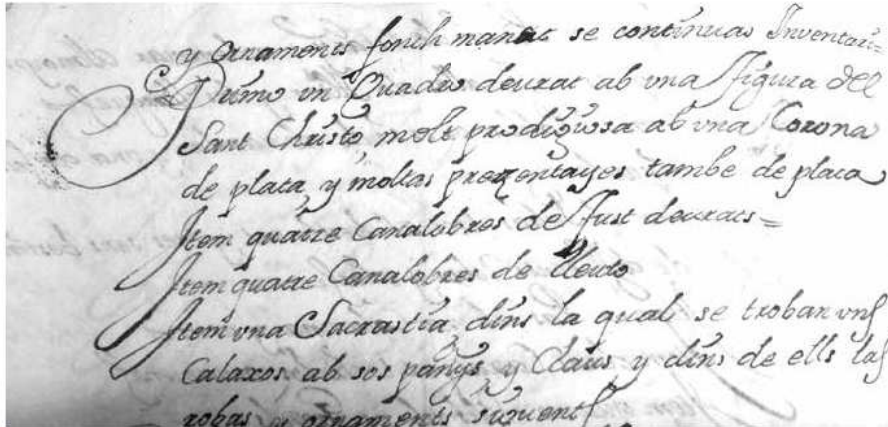 y ornaments fonch manat se continuas Inventari=
Primo vn Quadro deurat ab vna figura del
Sant Christo molt prodigiosa ab vna Corona
de plata, y moltas prezentayes tambe de plata
Item quatre Canalobres de fust deurats=
Item quatre Canalobres de lleuto
Item vna Sacrastia, dins la qual se troban vns
Calaxos ab sos panys, y Claus y dins de ells las
robas y ornaments siguents